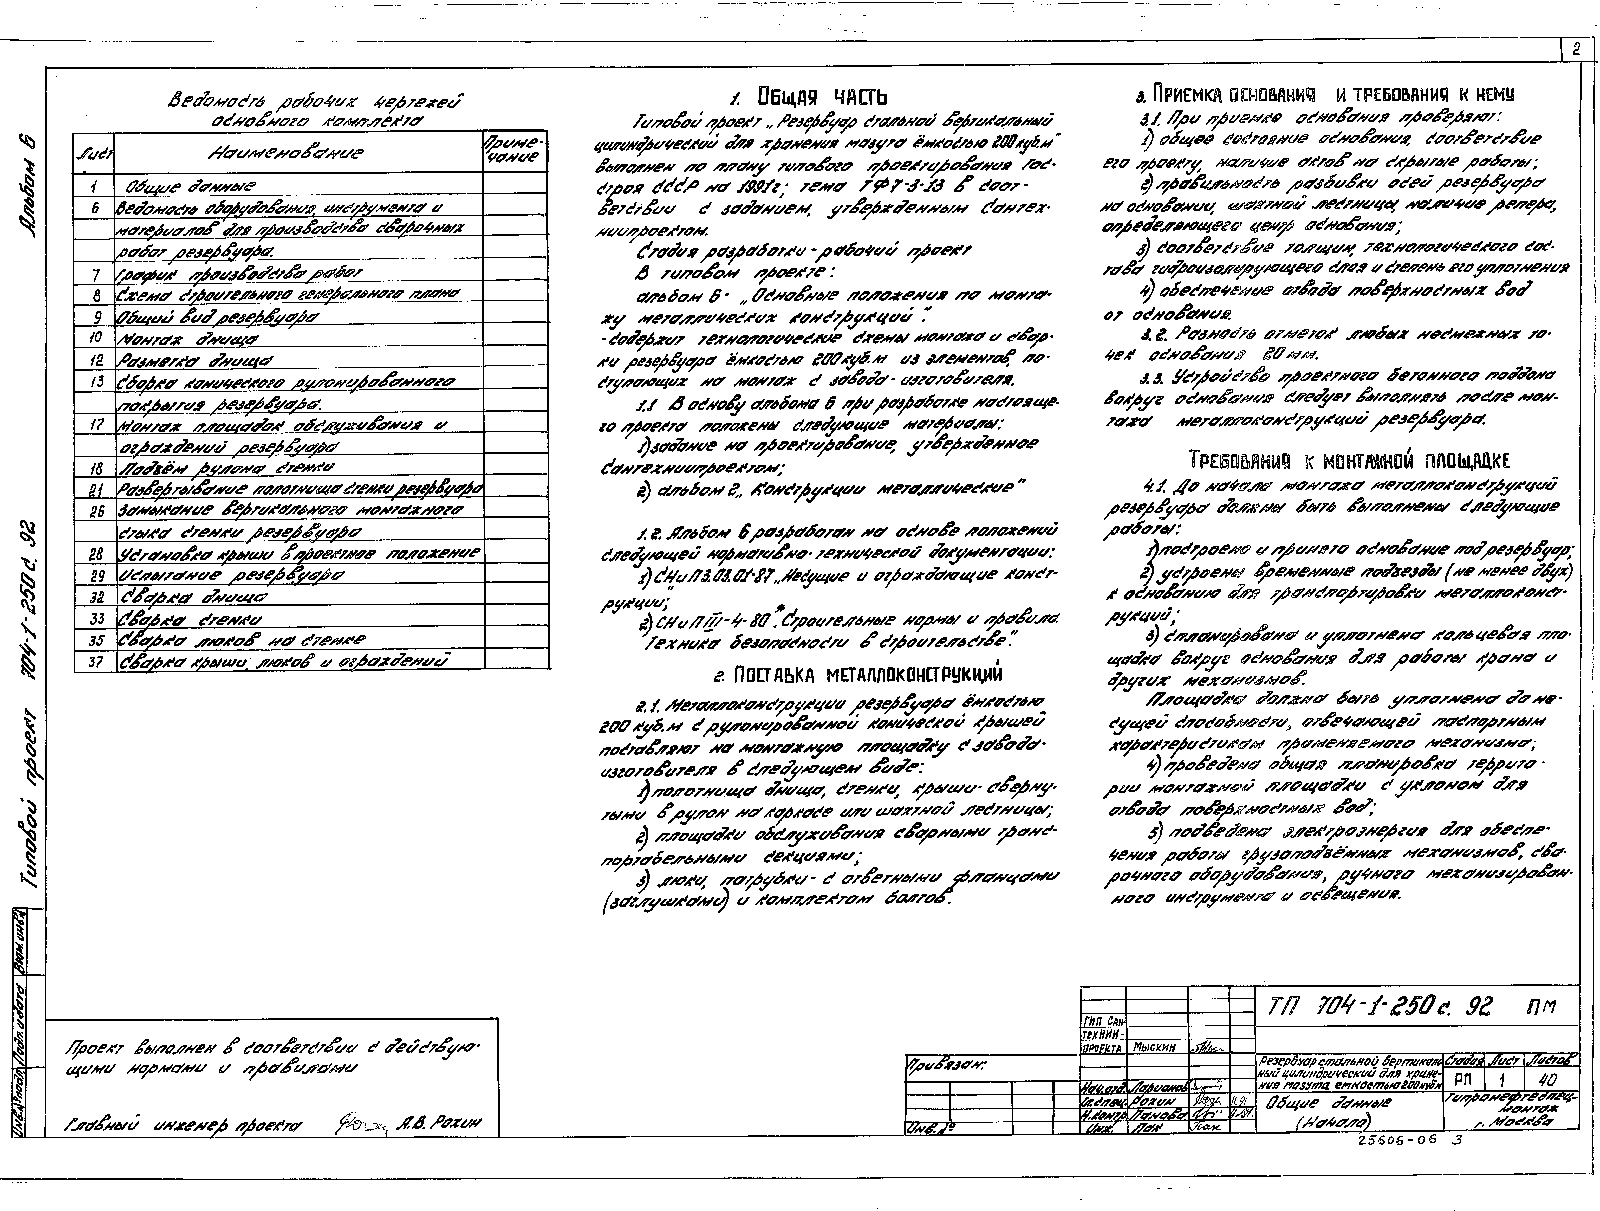 2
Альбом 6
Типовой проект 704-1-250 с. 92
Взам.инв.№
Подп. и дата
Инв.№ подл.
Ведомость рабочих чертежей
основного комплекта
Лист Наименование Приме-
чание
1 Общие данные
6 Ведомость оборудования, инструмента и
материалов для производства сварочных
работ резервуара.
7 График производства работ
8 Схема строительного генерального плана
9 Общий вид резервуара
10 Монтаж днища
12 Разметка днища
13 Сборка конического рулонированного
покрытия резервуара.
17 Монтаж площадок обслуживания и
ограждений резервуара
18 Подъём рулона стенки
21 Развертывание полотнища стенки резервуара
26 Замыкание вертикального монтажного
стыка стенки резервуара
28 Установка крыши в проектное положение
29 Испытание резервуара
32 Сварка днища
33 Сварка стенки
35 Сварка люков на стенке
37 Сварка крыши, люков и ограждений
Проект выполнен в соответствии с действую-
щими нормами и правилами
Главный инженер проекта А.В. Рохин
1. Общая часть
Типовой проект „Резервуар стальной вертикальный
цилиндрический для хранения мазута ёмкостью 200 куб.м"
выполнен по плану типового проектирования Гос-
строя СССР на 1991г; тема ТФ7-3-13 в соот-
ветствии с заданием, утвержденным Сантех-
ниипроектом.
Стадия разработки - рабочий проект
В типовом проекте:
альбом 6 - „Основные положения по монта-
жу металлических конструкций".
- содержит технологические схемы монтажа и свар-
ки резервуара ёмкостью 200 куб.м из элементов, по-
ступающих на монтаж с завода-изготовителя.
1.1 В основу альбома 6 при разработке настояще-
го проекта положены следующие материалы:
1) задание на проектирование, утвержденное
Сантехниипроектом;
2) альбом 2 „Конструкции металлические"
1.2. Альбом 6 разработан на основе положений
следующей нормативно-технической документации:
1) СНиП 3.03.01-87 „Несущие и ограждающие конст-
рукции";
2) СНиП III-4-80*. Строительные нормы и правила.
Техника безопасности в строительстве".
2. Поставка металлоконструкций
2.1. Металлоконструкции резервуара ёмкостью
200 куб.м с рулонированной конической крышей
поставляют на монтажную площадку с завода-
изготовителя в следующем виде:
1) полотнища днища, стенки, крыши - сверну-
тыми в рулон на каркасе или шахтной лестницы;
2) площадки обслуживания сварными транс-
портабельными секциями;
3) люки, патрубки - с ответными фланцами
(заглушками) и комплектом болтов.
3. Приемка основания и требования к нему
3.1. При приемке основания проверяют:
1) общее состояние основания, соответствие
его проекту, наличие актов на скрытые работы;
2) правильность разбивки осей резервуара
на основании, шахтной лестницы, наличие репера,
определяющего центр основания;
3) соответствие толщин, технологического сос-
тава гидроизолирующего слоя и степень его уплотнения
4) обеспечение отвода поверхностных вод
от основания.
3.2. Разность отметок любых несмежных то-
чек основания 20 мм.
3.3. Устройство проектного бетонного поддона
вокруг основания следует выполнять после мон-
тажа металлоконструкций резервуара.
Требования к монтажной площадке
4.1. До начала монтажа металлоконструкций
резервуара должны быть выполнены следующие
работы:
1) построено и принято основание под резервуар;
2) устроены временные подъезды (не менее двух)
к основанию для транспортировки металлоконст-
рукций;
3) спланирована и уплотнена кольцевая пло-
щадка вокруг основания для работы крана и
других механизмов.
Площадка должна быть уплотнена до не-
сущей способности, отвечающей паспортным
характеристикам применяемого механизма;
4) проведена общая планировка террито-
рии монтажной площадки с уклоном для
отвода поверхностных вод;
5) подведена электроэнергия для обеспе-
чения работы грузоподъёмных механизмов, сва-
рочного оборудования, ручного механизирован-
ного инструмента и освещения.
ТП 704-1-250 с. 92 ПМ
ГИП Сан-
технии-
проекта Мыскин
Привязан:
Инв. №
Нач.отд. Ларионов
Гл.спец. Рохин
Н.контр. Панова
Инж. Пак
Резервуар стальной вертикаль-
ный цилиндрический для хране-
ния мазута емкостью 200 куб.м
Стадия Лист Листов
РП 1 40
Общие данные
(Начало)
Гипронефтеспец-
монтаж
г. Москва
25606-06 3